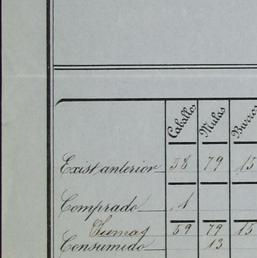 Caballos Mulas Burros
Exist. anterior 58 79 15
Comprado 1
Sumas 59 79 15
Consumido 13